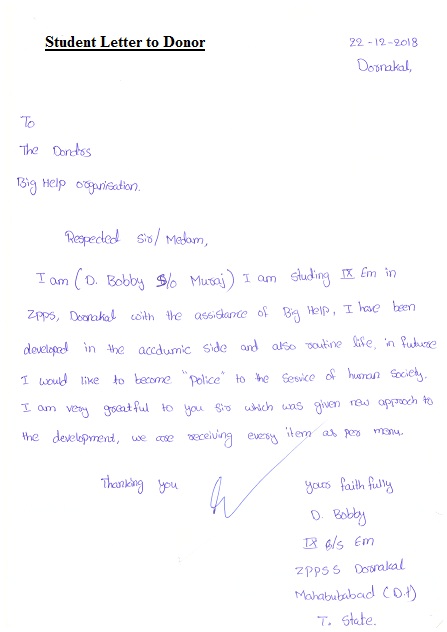 Student Letter to Donor
22-12-2018
Doornakal,
To
The Dondrs
Big Help organisation.
Respected Sir/Medam,
I am (D. Bobby S/o Muraj) I am studing IX Em in
ZPPS, Doornakal with the assistance of Big Help, I have been
developed in the accdumic side and also routine life, in future
I would like to become "Police" to the service of human society.
I am very greatful to you sir which was given new approch to
the development, we are receiving every item as per menu.
Thanking you
yours faithfully
D. Bobby
IX Em
ZPPSS Doornakal
Mahabubabad (D.t)
T. State.